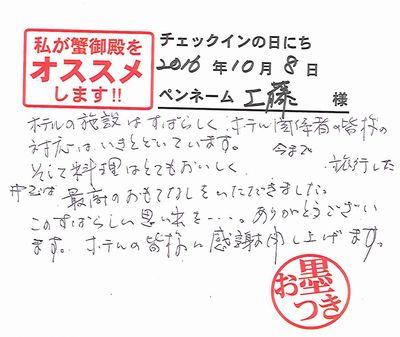 私が蟹御殿を
オススメ
します!!
チェックインの日にち
2016 年 10 月 8 日
ペンネーム 工藤 様
ホテルの施設はすばらしく、ホテル関係者の皆様の
対応はいきとどいています。 今まで
そして料理はとてもおいしく 旅行した
中では 最高のおもてなしをいただきました。
このすばらしい思い出を・・・。ありがとうござい
ます。ホテルの皆様に感謝申し上げます。
お墨つき